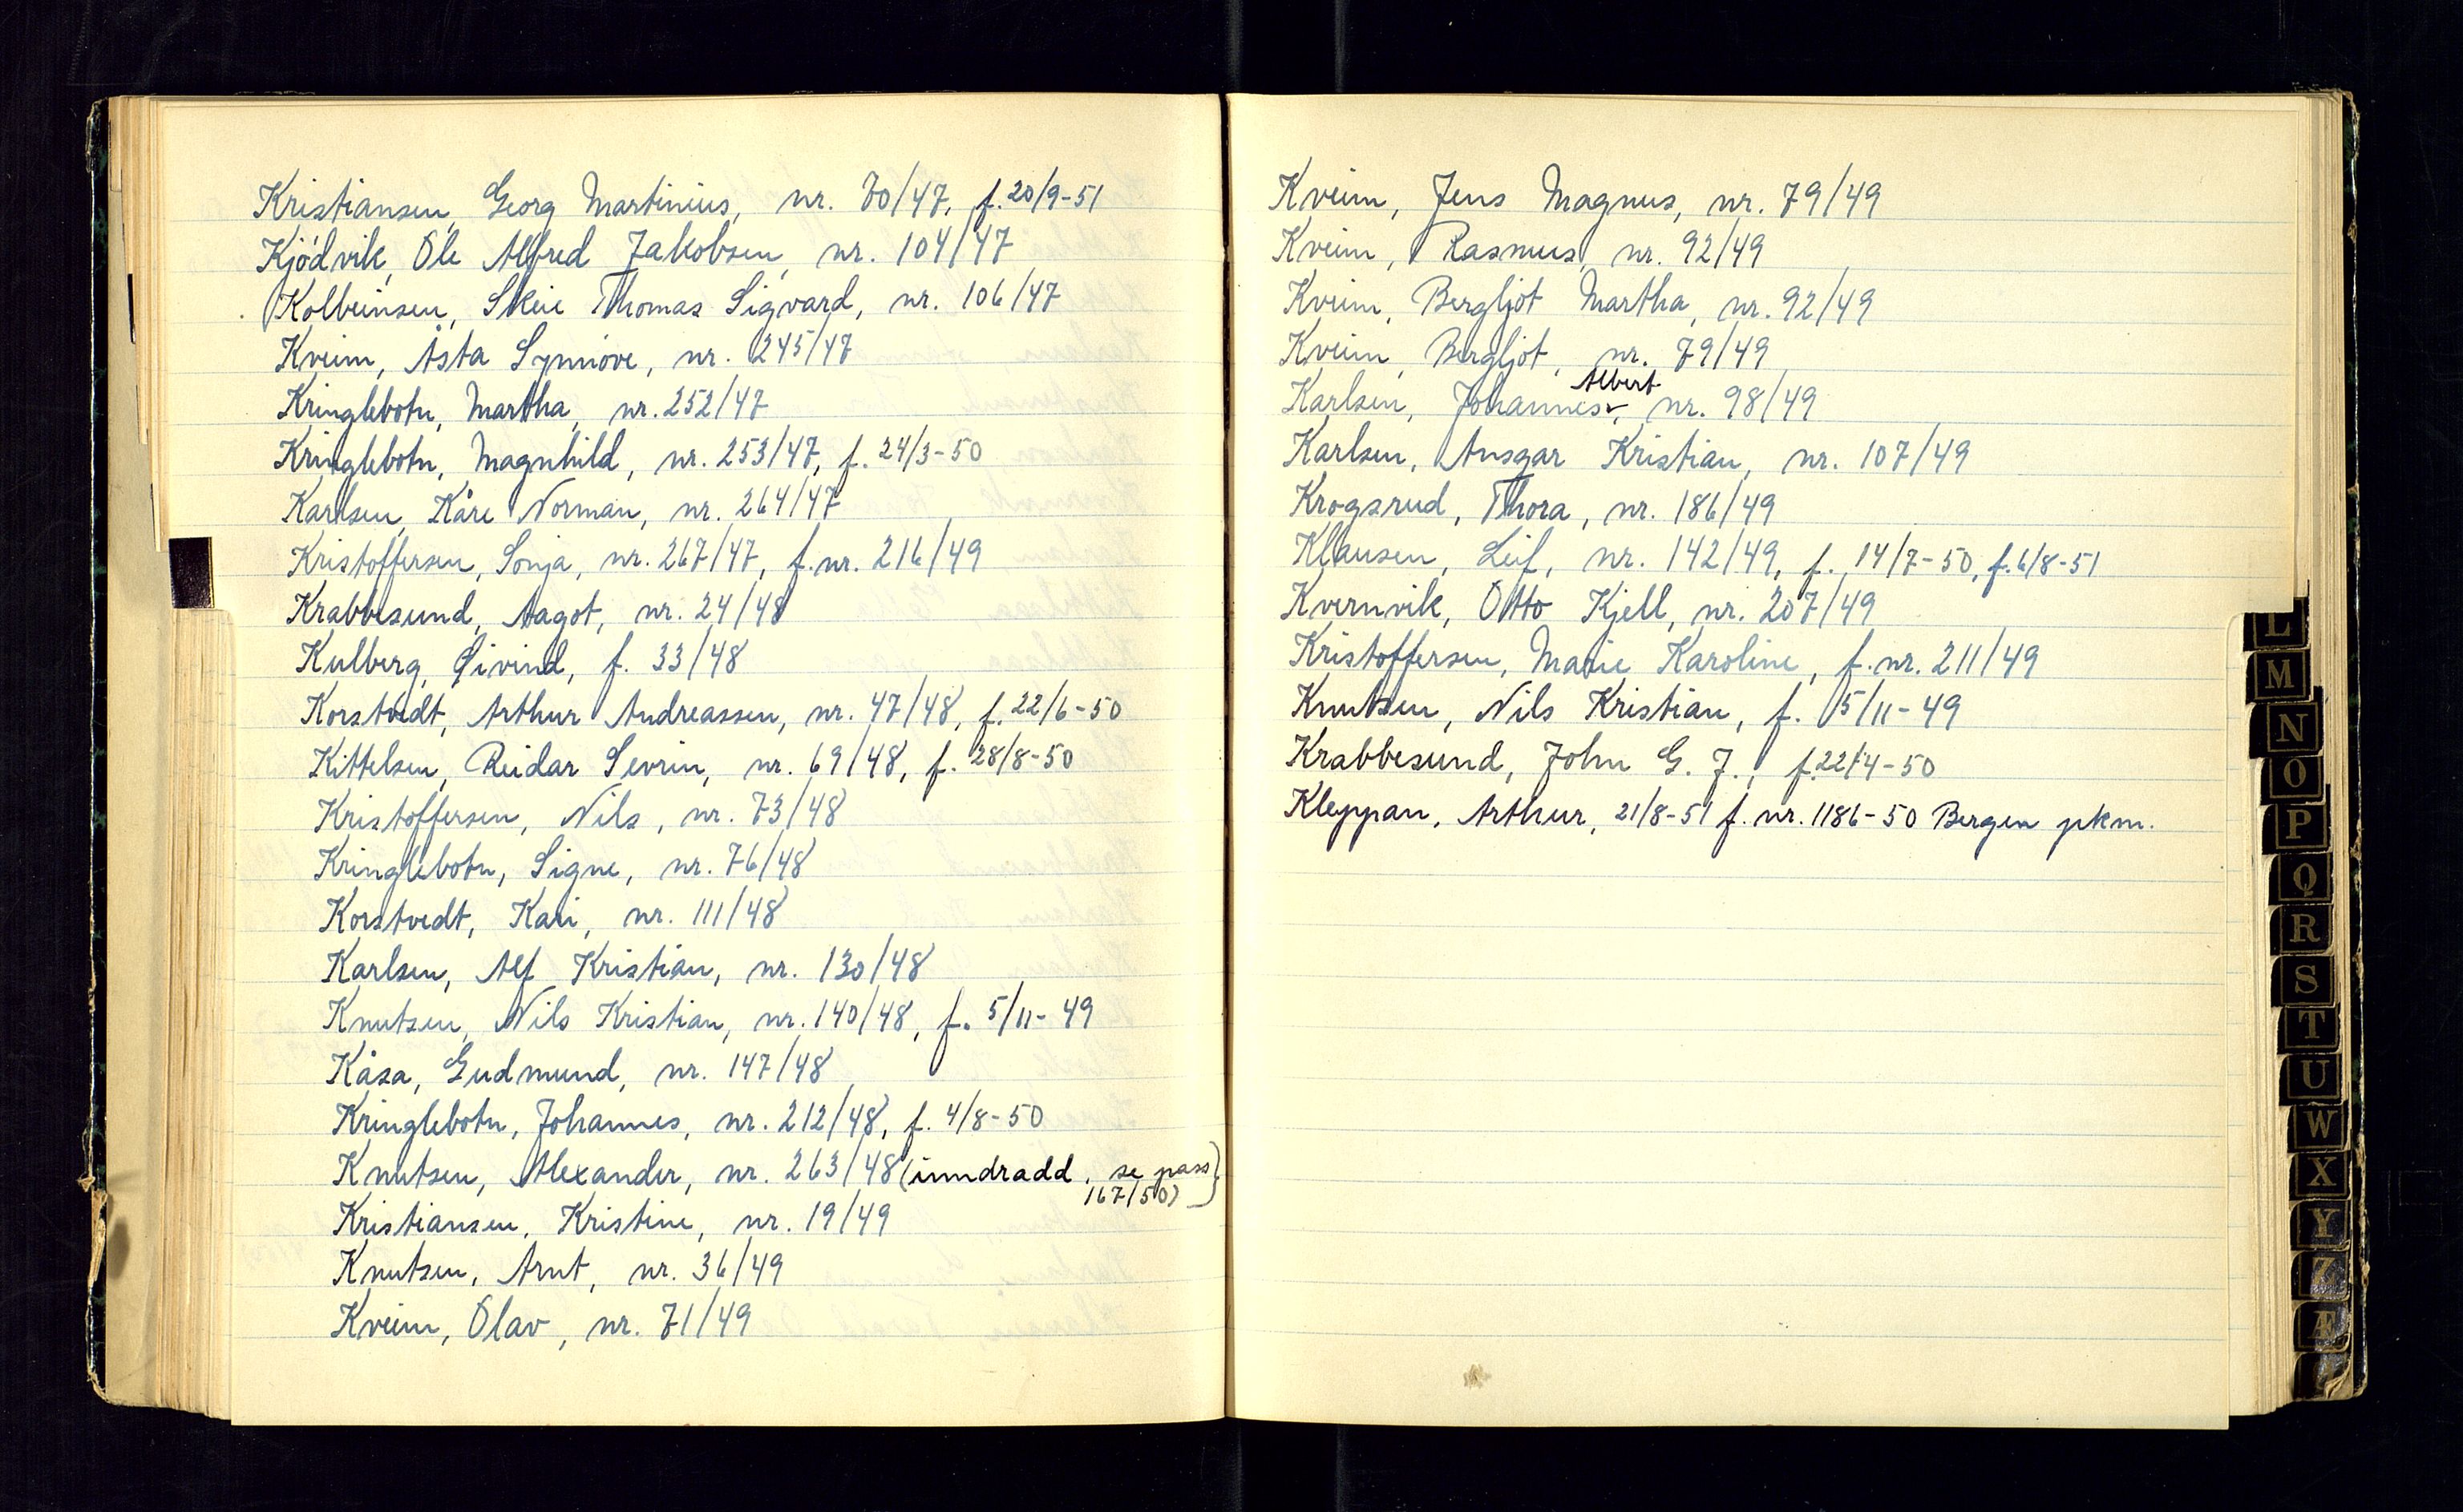 Kristiansen, Georg Martinius, nr. 70/47, f. 20/9-51
Kjødvik, Ole Alfred Jakobsen, nr. 104/47
Kolbeinsen, Skeie Thomas Sigvard, nr. 106/47
Kveim, Åsta Synnöve, nr. 245/47
Kringlebotn, Martha, nr. 252/47
Kringlebotn, Magnhild, nr. 253/47, f. 24/3-50
Karlsen, Kåre Norman, nr. 264/47
Kristoffersen, Sonja, nr. 267/47, f. nr. 216/49
Krabbesund, Aagot, nr. 24/48
Kulberg, Øivind, f. 33/48
Korstvedt, Arthur Andreassen, nr. 47/48, f. 22/6-50
Kittelsen, Reidar Sevrin, nr. 69/48, f. 28/8-50
Kristoffersen, Nils, nr. 73/48
Kringlebotn, Signe, nr. 76/48
Korstvedt, Kari, nr. 111/48
Karlsen, Alf Kristian, nr. 130/48
Knutsen, Nils Kristian, nr. 140/48, f. 5/11-49
Kåsa, Gudmund, nr. 147/48
Kringlebotn, Johannes, nr. 212/48, f. 4/8-50
Knutsen, Alexander, nr. 263/48 (inndradd, se pass
167/50)
Kristiansen, Kristine, nr. 19/49
Knutsen, Arnt, nr. 36/49
Kveim, Olav, nr. 71/49
Kveim, Jens Magnus, nr. 79/49
Kveim, Rasmus, nr. 92/49
Kveim, Bergljot Martha, nr. 92/49
Kveim, Bergljot, nr. 79/49
Albert
Karlsen, Johannes, nr. 98/49
Karlsen, Ansgar Kristian, nr. 107/49
Krogsrud, Thora, nr. 186/49
Klausen, Leif, nr. 142/49, f. 14/7-50, f. 6/8-51
Kvernvik, Otto Kjell, nr. 207/49
Kristoffersen, Marie Karoline, f. nr. 211/49
Knutsen, Nils Kristian, f. 5/11-49
Krabbesund, John G. J., f. 22/4-50
Kleppan, Arthur, 21/8-51 f. nr. 1186-50 Bergen pkm.
L
M
N
O
P
Q
R
S
T
U
W
X
Y
Z
Æ